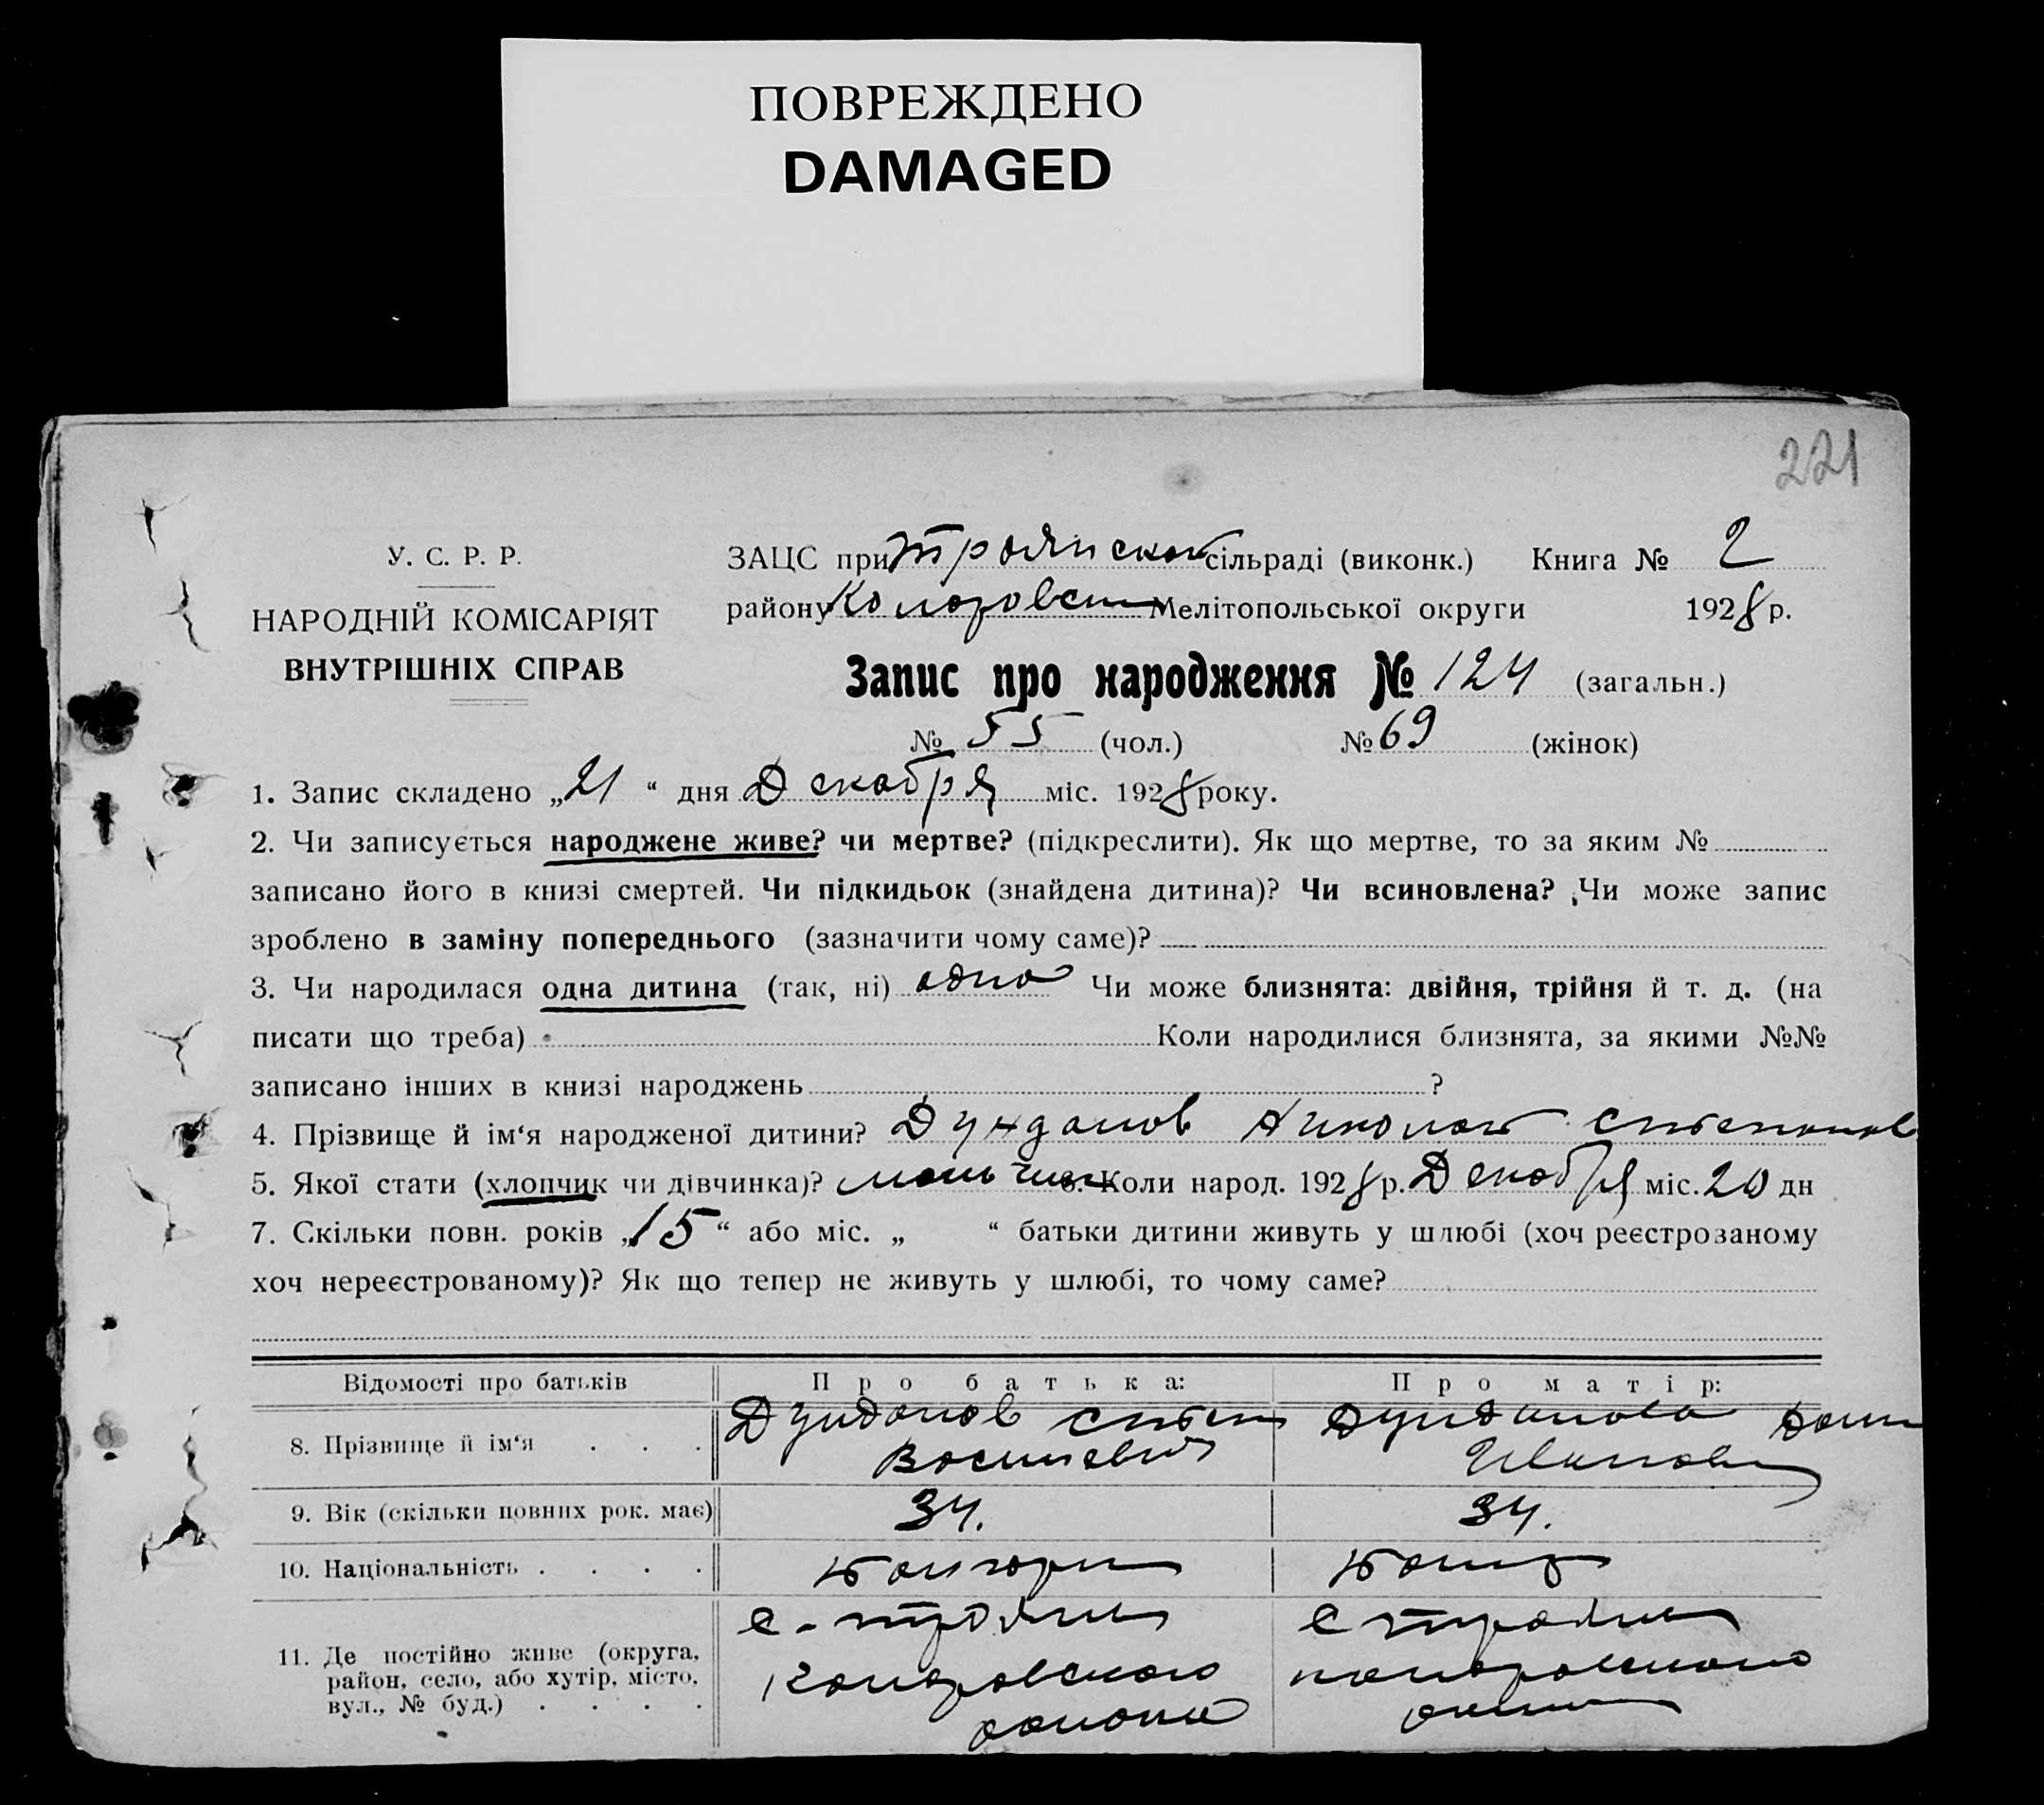 ПОВРЕЖДЕНО
DAMAGED
221
У. С. Р. Р.
НАРОДНІЙ КОМІСАРІЯТ
ВНУТРІШНІХ СПРАВ
ЗАЦС при Троянской сільраді (виконк.) Книга № 2
району Коларовск Мелітопольської округи 1928 р.
Запис про народження № 124 (загальн.)
№ 55 (чол.) № 69 (жінок)
1. Запис складено „21“ дня Декабря міс. 1928 року.
2. Чи записується народжене живе? чи мертве? (підкреслити). Як що мертве, то за яким №
записано його в книзі смертей. Чи підкидьок (знайдена дитина)? Чи всиновлена? Чи може запис
зроблено в заміну попереднього (зазначити чому саме)?
3. Чи народилася одна дитина (так, ні) одно Чи може близнята: двійня, трійня й т. д. (на
писати що треба) Коли народилися близнята, за якими №№
записано інших в книзі народжень ?
4. Прізвище й ім‘я народженої дитини? Дундалов Николай Степанов
5. Якої стати (хлопчик чи дівчинка)? мальчик 6. Коли народ. 1928 р. Декабря міс. 20 дн
7. Скільки повн. років „15“ або міс. „ “ батьки дитини живуть у шлюбі (хоч реєстрованому
хоч нереєстрованому)? Як що тепер не живуть у шлюбі, то чому саме?
Відомості про батьків Про батька: Про матір:
8. Прізвище й ім‘я
Василевич
Иванов
9. Вік (скільки повних рок. має) 34. 34.
10. Національність . . . . Болгари Болгар
11. Де постійно живе (округа, район, село, або хутір, місто, вул., № буд.) . . . .
с. Троян с Троян
Коларовского коларовского
района